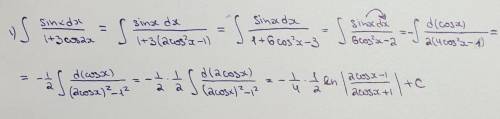 1) ∫ sinxdx / 1+3cos2x = ∫ sinx dx / 1+3(2cos²x-1) = ∫ sinxdx / 1+6cos²x-3 = ∫ sinxdx / 6cos²x-2 = -∫ d(cosx) / 2(4cos²x-1) =
= -1/2 ∫ d(cosx) / (2cosx)²-1² = -1/2 · 1/2 ∫ d(2cosx) / (2cosx)²-1² = -1/4 · 1/2 ln |2cosx-1 / 2cosx+1| + C